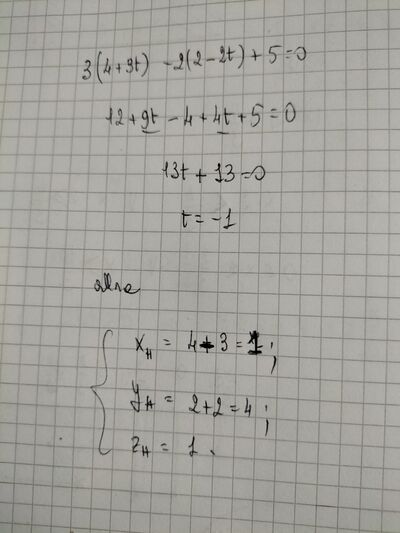 3(4+3t) -2(2-2t)+5=0
12+9t-4+4t+5=0
13t+13=0
t=-1
x_H = 4-3=1;
y_H = 2+2=4;
z_H = 1.